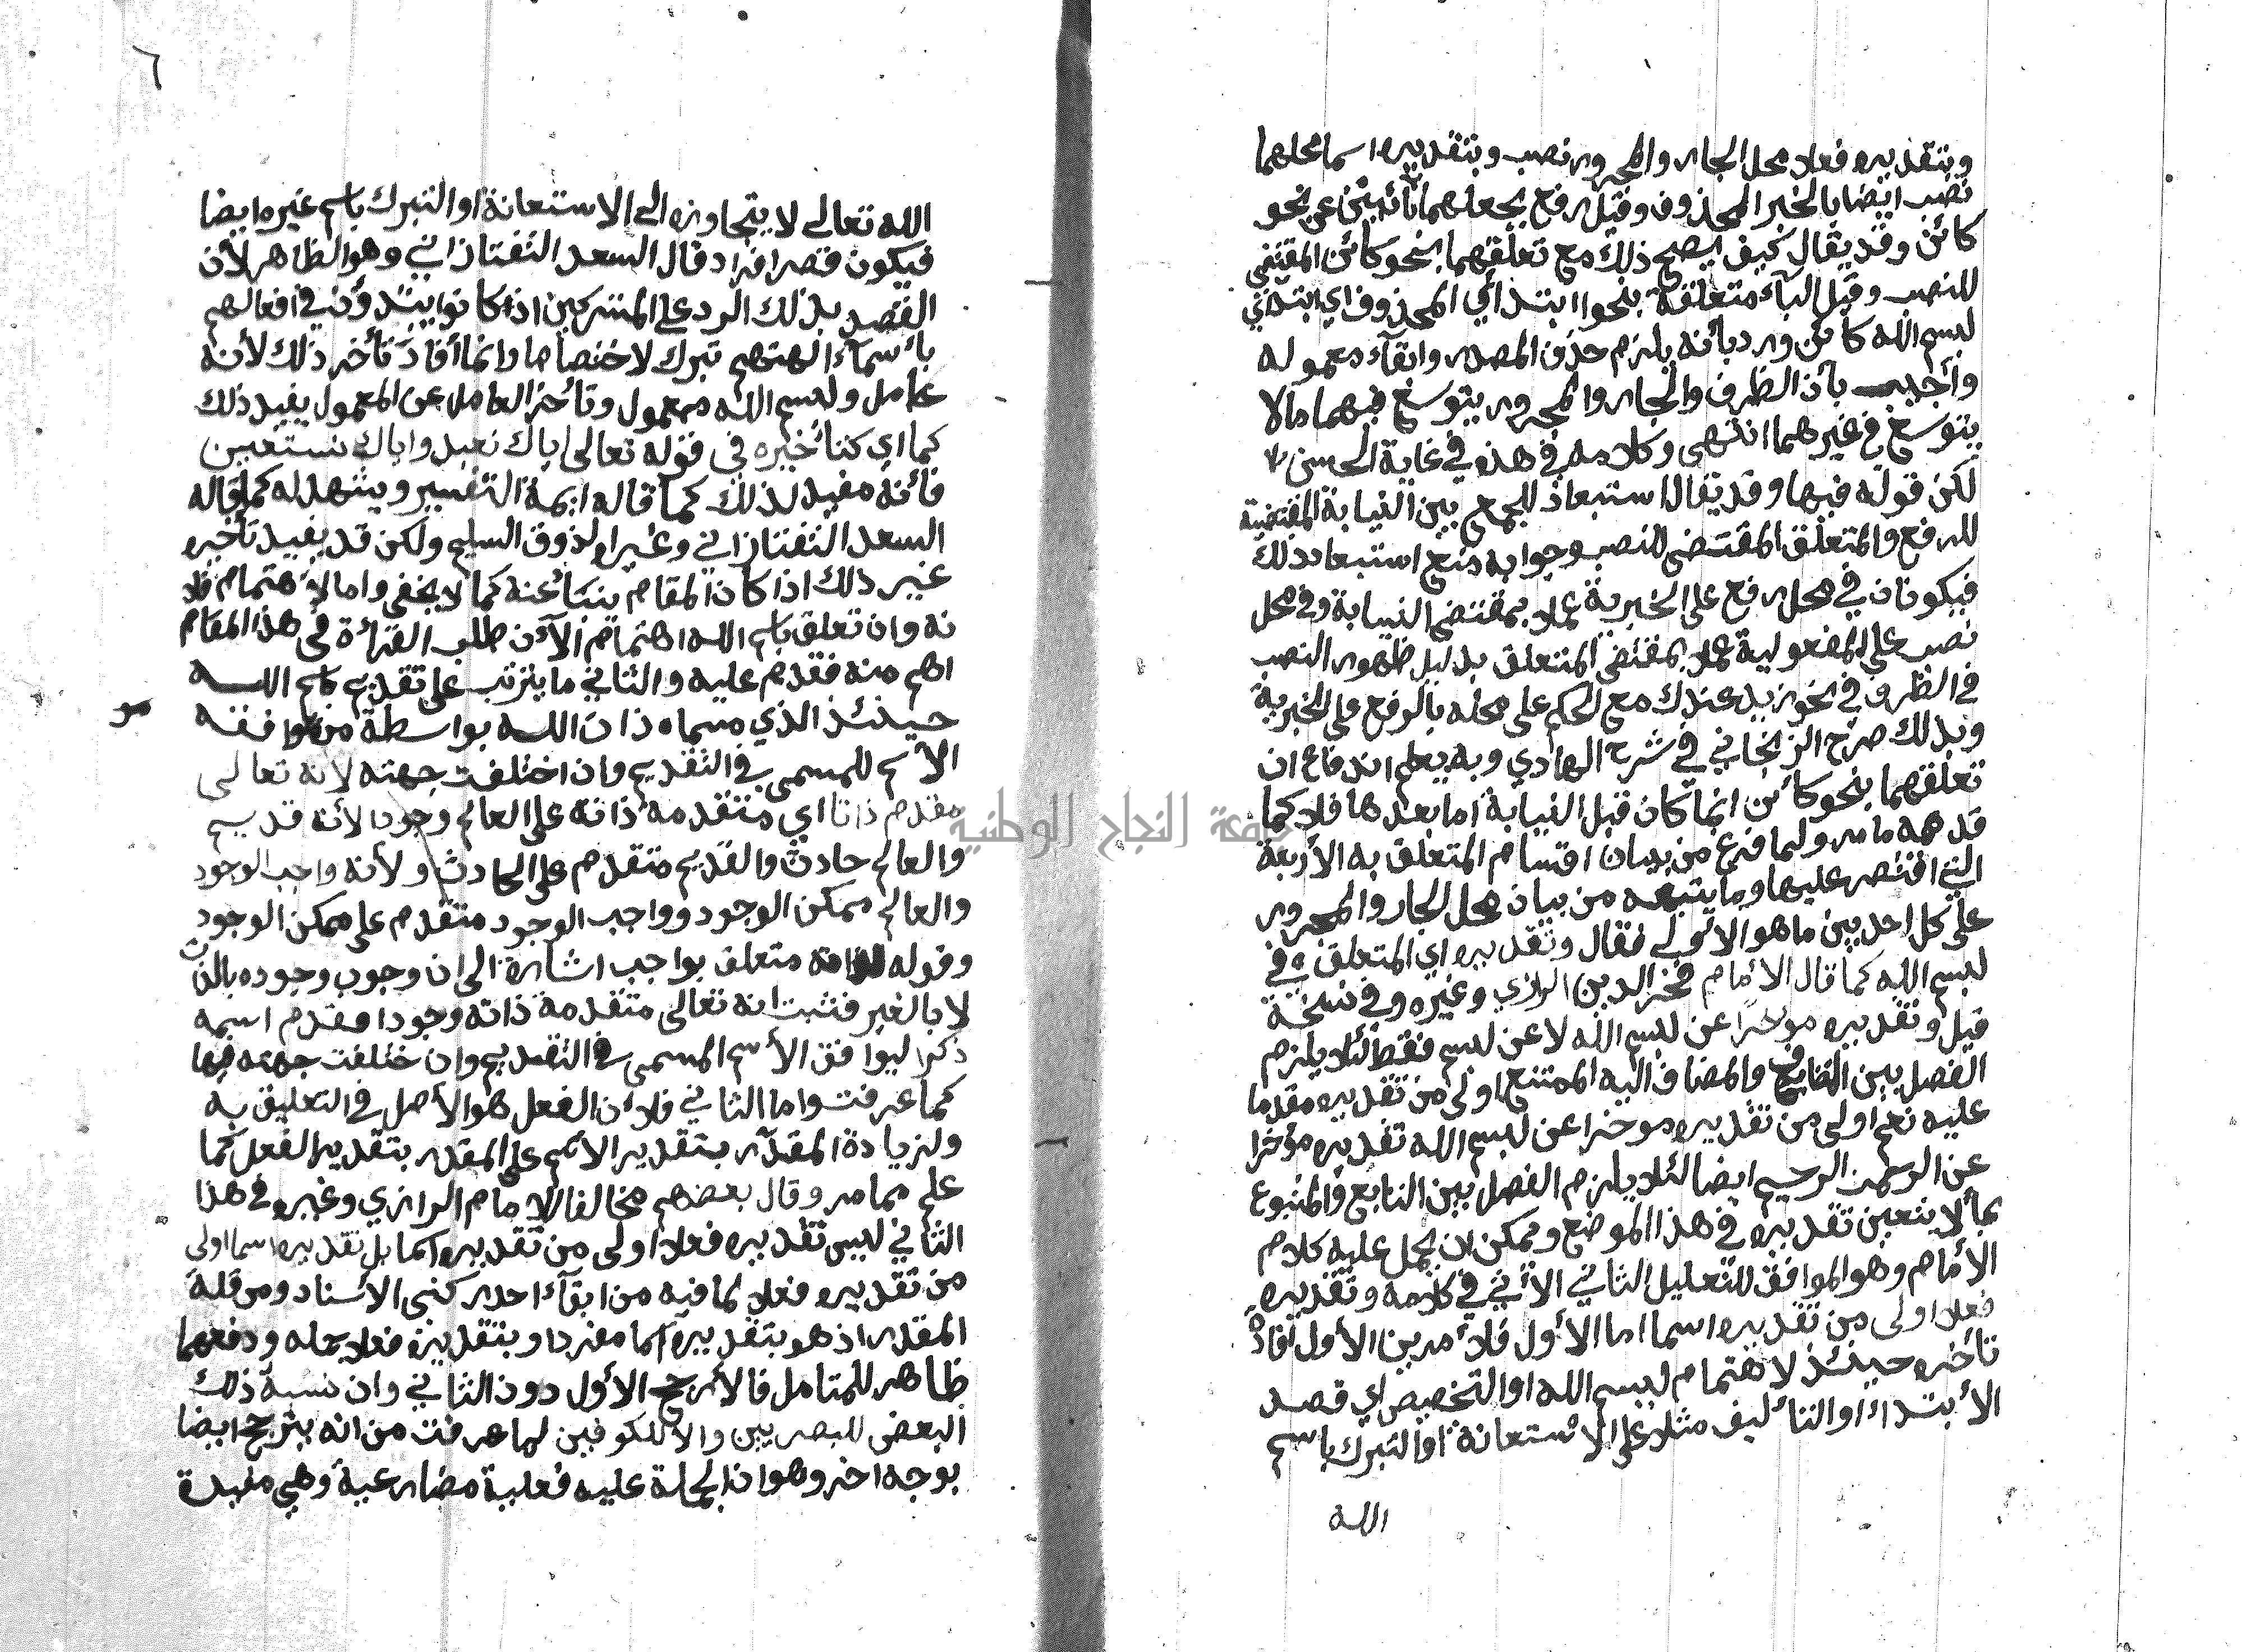 وبتقديره فعلا محل الجار والمجرور نصب وبتقديره اسما محلهما
نصب ايضا بالخبر المحذوف وقيل رفع بجعلهما نائبين عن نحو
كائن وقد يقال كيف يصح ذلك مع تعلقهما بنحو كائن المقتضي
للنصب وقيل الباء متعلقة بنحو ابتدائي المحذوف اي ابتدائي
بسم الله كائن ورد بأنه يلزم حذف المصدر وابقاء معموله
وأجيب بأن الظرف والجار والمجرور يتوسع فيهما مالا
يتوسع في غيرهما انتهى وكلامه في هذه في غاية الحسن
لكن قوله فيها وقد يقال استبعاد للجمع بين النيابة المقتضية
للرفع والمتعلق المقتضي للنصب وجوابه منع استبعاد ذلك
فيكونان في محل رفع على الخبرية عملا بمقتضى النيابة وفي محل
نصب على المفعولية عملا بمقتضى المتعلق بدليل ظهور النصب
في الظرف في نحو زيد عندك مع الحكم على محله بالرفع على الخبرية
وبذلك صرح الزنجاني في شرح الهادي وبه يعلم اندفاع ان
تعلقهما بنحو كائن انما كان قبل النيابة اما بعدها فلا كما
قدمه مامر ولما فرغ من بيان اقسام المتعلق به الأربعة
التي اقتصر عليها وما يتبعه من بيان محل الجار والمجرور
على كل احد بين ماهو الأولى فقال وتقديره اي المتعلق به في
بسم الله كما قال الأمام فخر الدين الرازي وغيره وفي نسخة
قبل وتقديره موخرا عن بسم الله لا عن بسم فقط لئلا يلزم
الفصل بين المضاف والمضاف اليه الممتنع اولى من تقديره مقدما
عليه نعم اولى من تقديره موخرا عن بسم الله تقديره مؤخرا
عن الرحمن الرحيم ايضا لئلا يلزم الفصل بين التابع والمتبوع
بما لا يتعين تقديره في هذا الموضع وممكن ان يحمل عليه كلام
الأمام وهو الموافق للتعليل الثاني الأتي في كلامه وتقديره
فعلا اولى من تقديره اسما اما الأول فلأمرين الأول افادة
تأخره حينئذ لاهتمام بسم الله او التخصيص اي قصد
الأبتداء او التأليف مثلا على الأستعانة او التبرك باسم
الله
٦
الله تعالى لا يتجاوزه الى الاستعانة او التبرك باسم غيره ايضا
فيكون قصر افراد قال السعد التفتازاني وهو الظاهر لأن
القصد بذلك الرد على المشركين اذ كانوا يبتدؤن في افعالهم
بأسماء الهتهم تبرك لاختصاصا وانما أفاد تأخر ذلك لأنه
عامل وبسم الله معمول وتأخر العامل عن المعمول يفيد ذلك
كما اي كتأخيره في قوله تعالى اياك نعبد واياك نستعين
فأنه مفيد لذلك كما قاله ايمة التفسير ويشهد له كما قاله
السعد التفتازاني وغيره الذوق السليم ولكن قد يفيد تأخيره
غير ذلك اذا كان المقام ينبأ عنه كما لا يخفى واما الأهتمام فلا
نه وان تعلق باسم الله اهتمام الأن طلب القراءة في هذا المقام
اهم منه فقدم عليه والثاني ما يترتب على تقديم باسم الله
حينئذ الذي مسماه ذات الله بواسطة من موافقة
الأسم للمسمى في التقديم وان اختلفت جهته لأنه تعالى
مقدم ذاتا اي متقدمة ذاته على العالم وجودا لأنه قديم
والعالم حادث والقديم متقدم على الحادث ولأنه واجب الوجود
والعالم ممكن الوجود وواجب الوجود متقدم على ممكن الوجود
وقوله لذاته متعلق بواجب اشارة الى ان وجوب وجوده بالذات
لا بالغير فثبت انه تعالى متقدمة ذاته وجودا فقدم اسمه
ذكرا ليوافق الأسم المسمى في التقديم وان ختلفت جهته فيها
كما عرفت واما الثاني فلأن الفعل هو الأصل في التعليق به
ولزيادة المقدر بتقدير الأسم على المقدر بتقدير الفعل كما
علم مما مر وقال بعضهم مخالفا للامام الرازي وغيره في هذا
الثاني ليس تقديره فعلا اولى من تقديره اسما بل تقديره اسما اولى
من تقديره فعلا لما فيه من ابقاء احد ركني الأسناد ومن قلة
المقدر اذ هو بتقديره اسما مفردا وبتقديره فعلا جملة ودفعهما
ظاهر للمتامل فالأرجح الأول دون الثاني وان نسبة ذلك
البعض للبصريين والأ للكوفيين لما عرفت من انه يترجح ايضا
بوجه اخر وهو ان الجملة عليه فعلية مضارعية وهي مفيدة
جامعة النجاح الوطنية